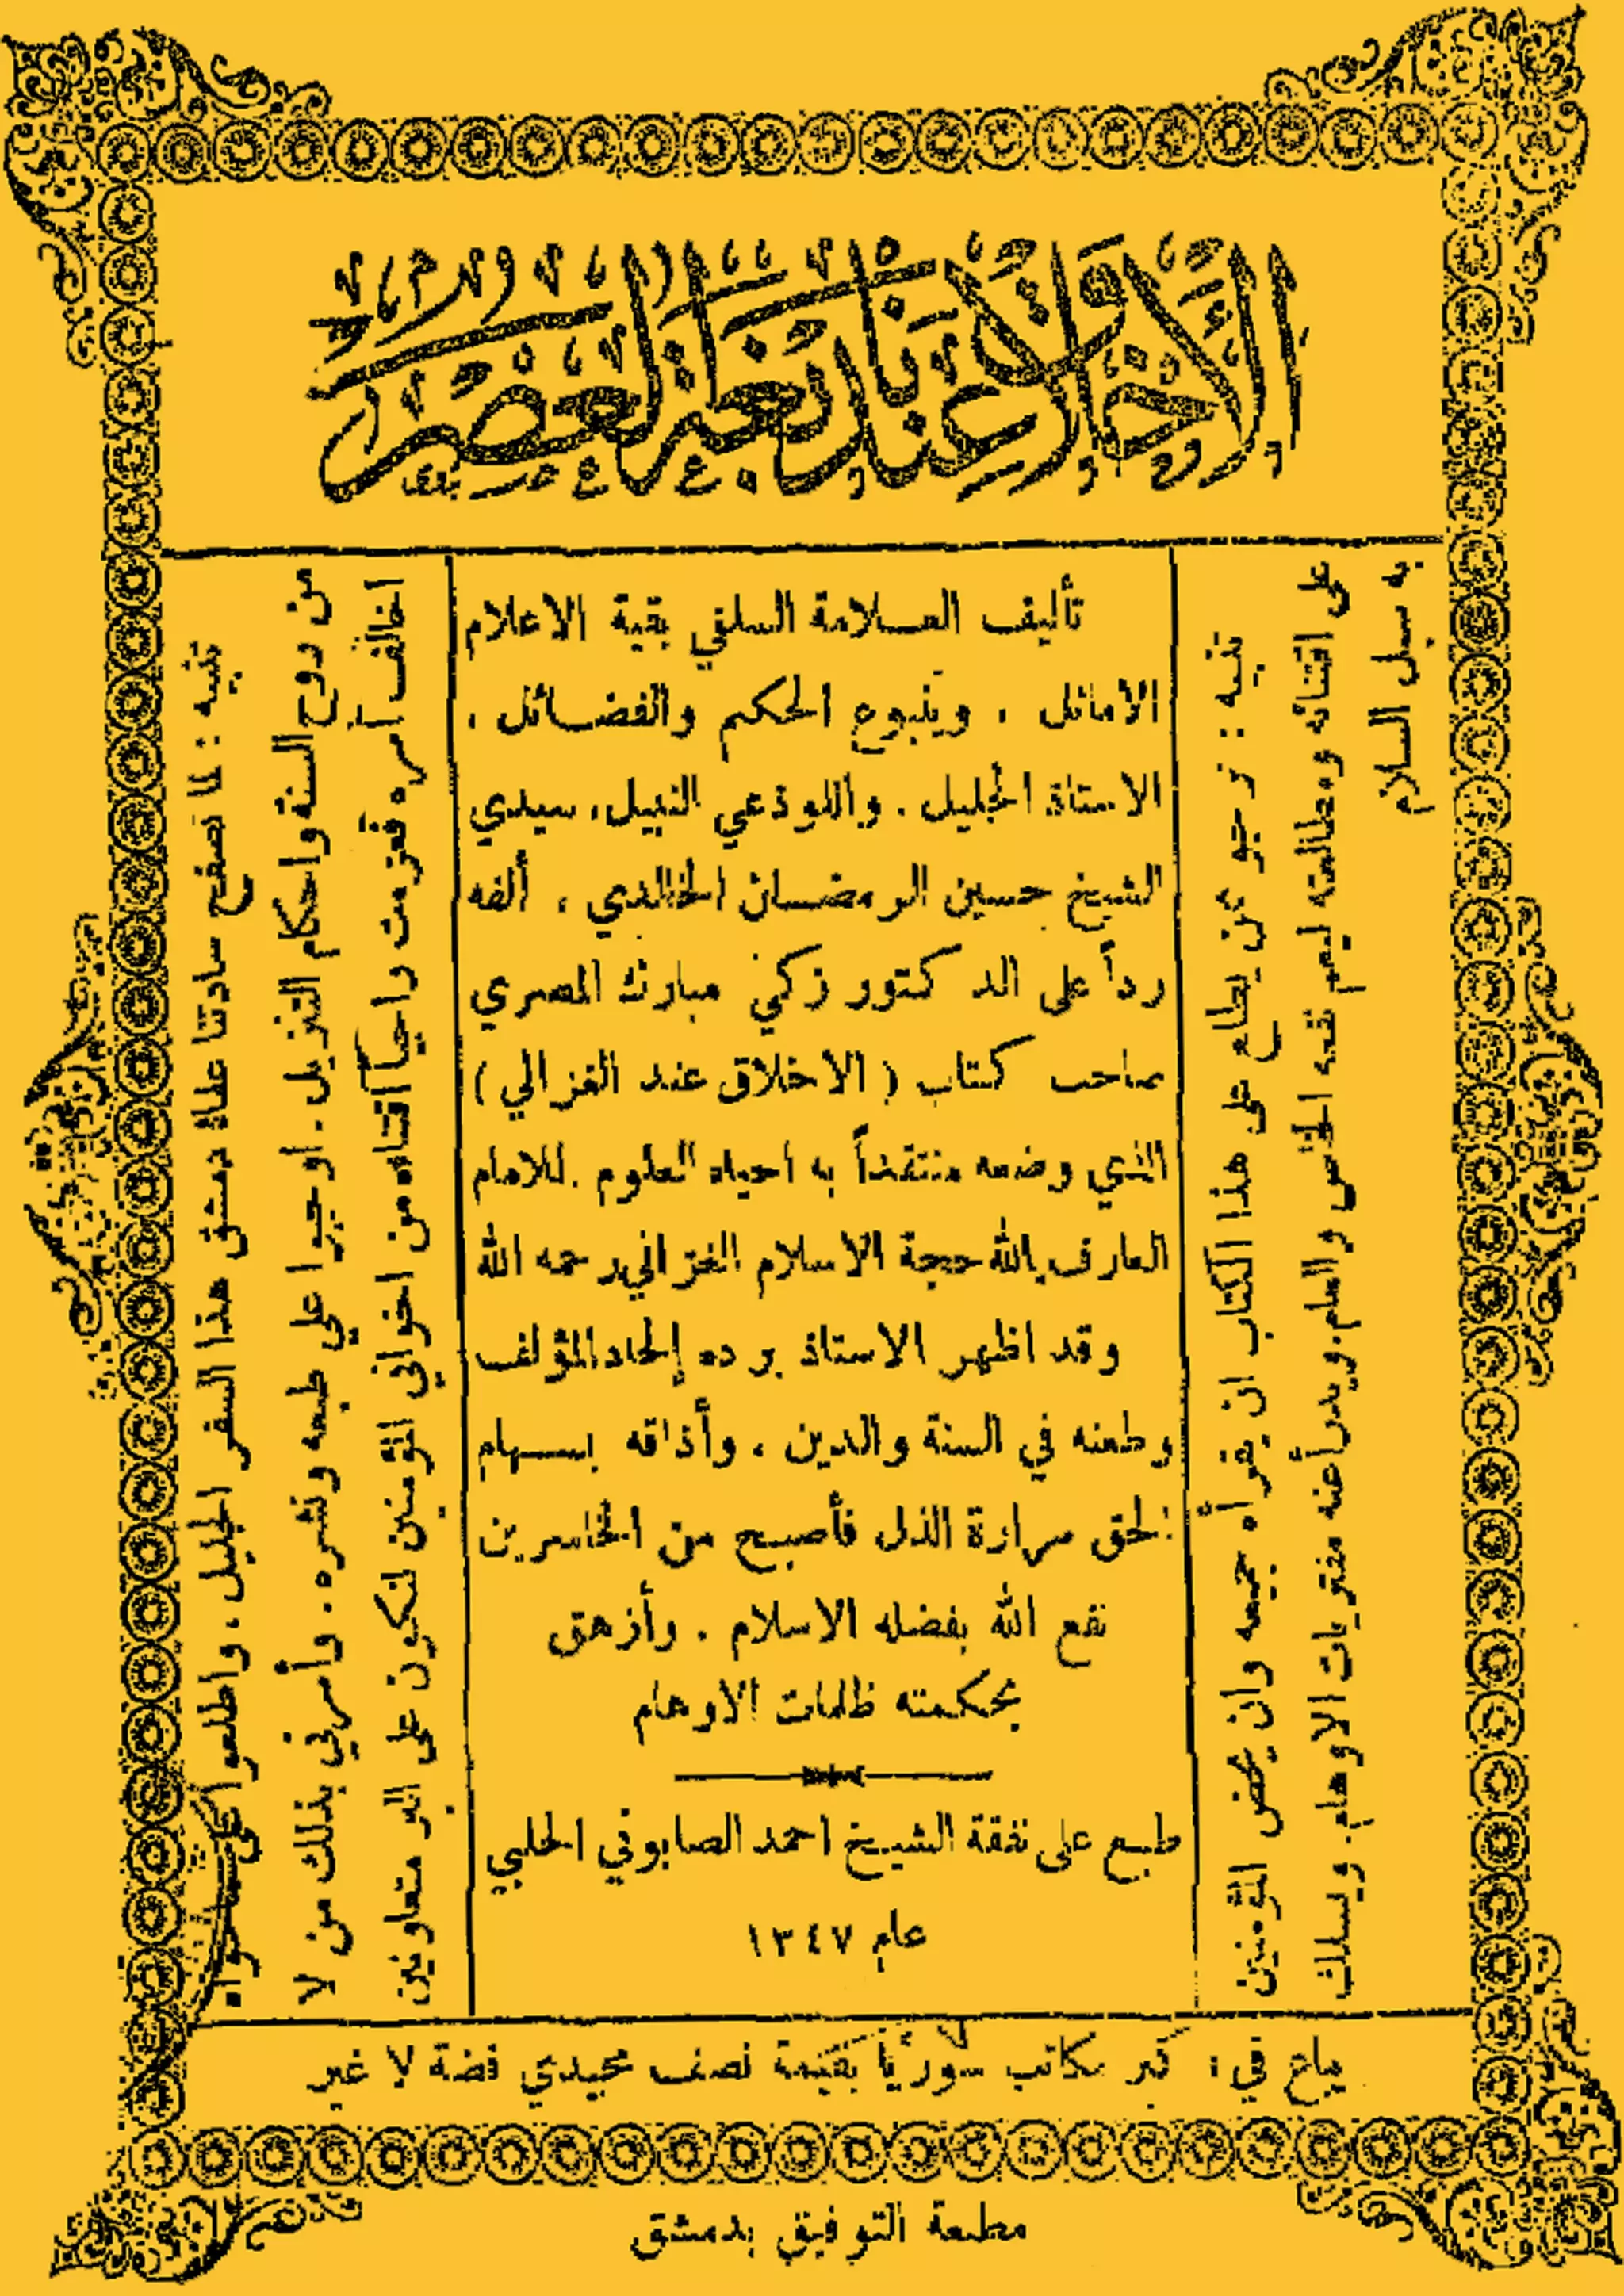 الأخلاق عند بعض أهل العصر
تأليف العلامة السلفي بقية الاعلام
الاماثل ، وينبوع الحكم والفضائل ،
الاستاذ الجليل . واللوذعي النبيل، سيدي
الشيخ حسين الرمضان الخالدي ، ألفه
رداً على الدكتور زكي مبارك المصري
صاحب كتاب ( الاخلاق عند الغزالي )
الذي وضعه منتقداً به احياء العلوم . للامام
العارف بالله حجة الاسلام الغزالي رحمه الله
وقد اظهر الاستاذ برده إلحاد المؤلف
وطعنه في السنة والدين ، وأذاقه بسهام
الحق مرارة الذل فأصبح من الخاسرين
نفع الله بفضله الاسلام . وأزهق
بحكمته ظلمات الاوهام
طبع على نفقة الشيخ احمد الصابوني الحلبي
عام ١٣٤٧
تنبيه : نرجو من يطلع على هذا الكتاب ان يقرأه جميعه وان يحض المؤمنين
على اقتنائه ومطالعته ليعم نفعه الخاص والعام. ويدرأ عنه مفتريات الاوهام. ويسلك
به سبل السلام
تنبيه : لما تصفح سادتنا علماء دمشق هذا السفر الجليل ، واطلعوا على ما حواه
من روح السنة واحكام التنزيل . اوجبوا علي طبعه ونشره . وأمرني بذلك من لا
اخالف أمره فعزمت راجياً اقتناءه من اخواني المؤمنين لنكون على البر متعاونين
يباع في : كبر مكاتب سوريا بقيمة نصف مجيدي فضة لا غير
مطبعة التوفيق بدمشق